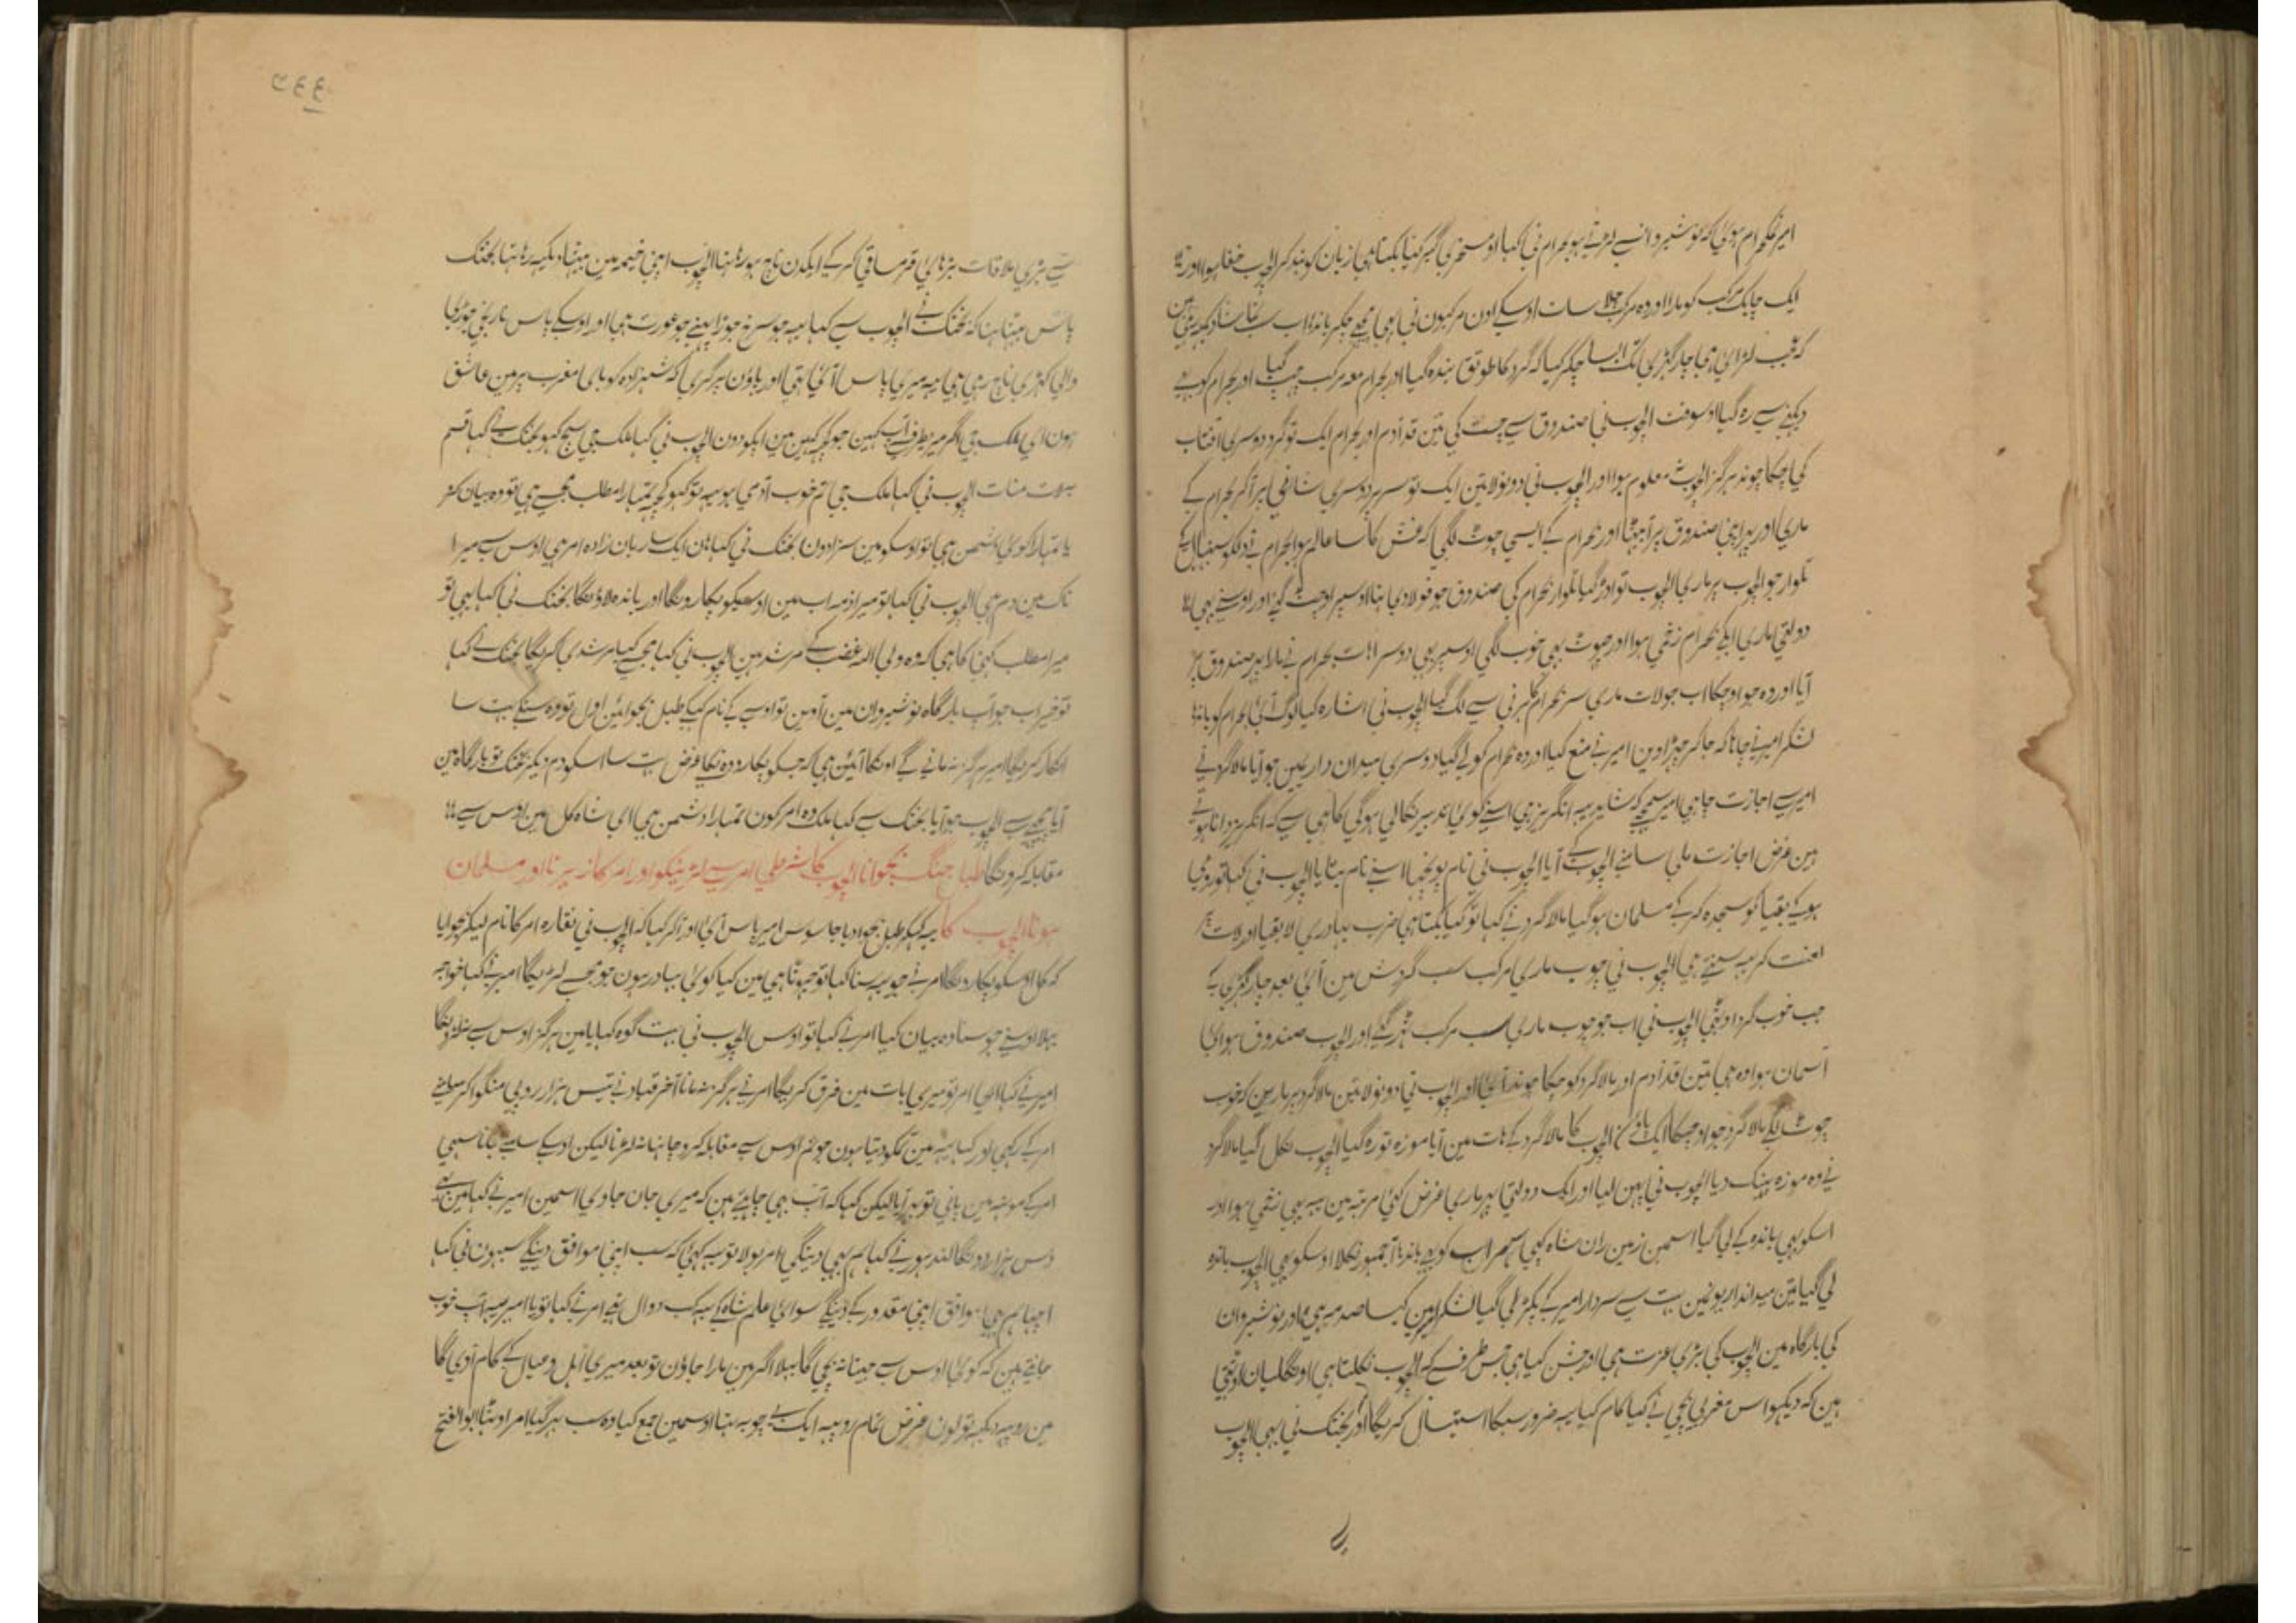 امیر نمکحرام ہوئی کہ نوشیروانسے لڑتے ہو بہرام نی کہا او مسخری گیر کیا بکتا ہی زبان کو بند کر الجوب خفا ہوا اور
ایک چابک مرکب کو مارا اور وہ مرکب جہلا سات اوسکے اون مرکبون نی بہی پیچھے چکر باندہا اب سب تماشا دیکہہ رہی ہین
کہ عجب لڑائی ہی چار گہڑی تک ایسا چکر کیا کہ گرد کا طوق بندہ گیا اور بہرام معہ مرکب چہپ گیا اور بہرام کو بہی
دیکہنے سے رہ گیا اوسوقت الجوب نی صندوق سے جست کی تین قد آدم اور بہرام ایک تو گرد دوسری افتاب
کی چکاچوند ہرگز الجوب نہ معلوم ہوا اور الجوب نی دونو لاتین ایک تو سر پر دوسری شانی پر آکر بہرام کے
ماری اور پہر اپنی صندوق پر آبیٹہا اور بہرام کے ایسی چوٹ لگی کہ غش کا سا عالم ہوا بہرام نے دلکو سنبہال کے
تلوار جو الجوب پر ماری الجوب تو اوڑ گیا تلوار بہرام کی صندوق جو فولادی تہا اوسپر اوچٹ گئے اور اوسنے بہی
دولتی ماری ابکے بہرام زخمی ہوا اور چوٹ بہی خوب لگی اوسپر بہی دوسرا ہات بہرام نے مارا پہر صندوق پر
آیا اور وہ جو اوچکا اب جو لات ماری سر بہرام کا پرنی سے لگ گیا الجوب نی اشارہ کیا لوگ آئی بہرام کو باندہا
لشکر امیرنے چاہا کہ جا کر چہڑاوین امیر نے منع کیا اور وہ بہرام کو لے گیا دوسری میدان داریمین جو آیا مالاگرد نے
امیرسے اجازت چاہی امیر سمجہے کہ شاید یہ انگریز ہی اسنے کوئی تدبیر نکالی ہوگی کاہی سے کہ انگریز دانا ہوتے
ہین غرض اجازت ملی سامنے الجوب کے آیا الجوب نی نام پوچہا اسنے نام بتایا الجوب نی کہا تو رومی
ہوکے بقیا کو سجدہ کرکے مسلمان ہو گیا مالاگرد نے کہا تو کیا بکتا ہی ضرب بہادری لا بقیا اور لات پر
لعنت کر یہ سنتے ہی الجوب نی چوب ماری مرکب سب گردش مین آئی بعد چار گہڑی کے
جب خوب گرد اوٹہی الجوب نی اب جو چوب ماری سب مرکب ٹہر گئے اور الجوب صندوق سی
آسمان ہوا وہ ہی تین قد آدم اور مالاگرد کو چکاچوند آئی اور الجوب نی دونو لاتین مالاگرد پر مارین کہ خوب
چوٹ لگے مالاگرد جو اوچکا ایک پاؤن الجوب کا مالاگرد کے ہات مین آیا موزہ تو رہ گیا الجوب نکل گیا مالاگرد
نے وہ موزہ پہینک دیا الجوب نی پہن لیا اور ایک دولتی پہر ماری غرض کئی مرتبہ مین یہ بہی زخمی ہوا اور
اسکو بہی باندہ کے لی گیا اسمین زمین ران شاہ کہی سہراب کو بہی باندہا جمہور نکلا اوسکو بہی الجوب باندہ
لی گیا تین میداندارریونمین بہت سے سردار امیر کے پکڑ لی گیا لشکر امیرمین کیسا صدمہ ہی اور نوشیروان
کی بارگاہ مین الجوب کی بڑی عزت ہی اور جشن کیا ہی جس طرف کہ الجوب نکلتا ہی اونگلیان اوٹہتی
ہین کہ دیکہو اس مغربی بچی نے کیا کام کیا یہ ضرور سبکا استیصال کریگا اور بختک نی بہی الجوب
سے بڑی ملاقات بڑہائی قرمساقی کرکے ایکدن ناچ ہو رہا تہا الجوب اپنی خیمہ مین بیٹہا دیکہہ رہا تہا بختک
پاس بیٹہا تہا کہ بختک نے الجوب سے کہا یہ جو سرخ جوڑا پہنے جو عورت ہی اور اوسکے پاس نارنجی جوڑی
والی کہڑی ناچ رہی ہی یہ میری پاس آئی تہی اور پاؤن پر گری کہ شہزادہ کوپای مغرب پر مین عاشق
ہون ای ملک جی اگر میریطرف آپ کہین جو کچہہ کہین مین ایکو دون الجوب نی کہا ملک جی سچ کہو بختک نے کہا قسم
لات منات الجوب نی کہا ملک جی تم خوب آدمی ہو یہ تو کہو کچہہ تمہارا مطلب مجہسے ہی تو وہ بیان کرو
یا تمہارا کوئی دشمن ہی تو اوسکو مین سزا دون بختک نی کہا ہان ایک ساربان زادہ امر ہی اوس سے میرا
ناک مین دم ہی الجوب نی کہا تو میرا ذمہ اب مین اوسیکو پکارونگا اور باندہ لاؤنگا بختک نی کہا یہی تو
میرا مطلب کہنی کا ہی کہ وہ ولی اللہ غضب کے مرشد ہین الجوب نی کہا مجہسے کیا مرشدی کریگا بختک نے کہا
تو خیر اب جو آپ بارگاہ نوشیروان مین آوین تو اوسی کے نام کہکے طبل بجوائین اول تو وہ سنکے بہت سا
انکار کریگا امیر ہرگز نہ مانے گے اونکا آئین ہی کہ جسکو پکارو وہ نکلے غرض بہت سا اسکو دم دیکر بختک تو بارگاہ مین
آیا پیچھے سے الجوب جو آیا بختک سے کہا ملک وہ امر کون تمہارا دشمن ہی ای شاہ کل مین اوس سے
مقابلہ کرونگا طبل جنگ بجوانا الجوب کا شرطی امر سے لڑنیکو اور امر کا زیر کرنا اور مسلمان
ہونا الجوب کا یہ کہکر طبل بجوا دیا جاسوس امیر پاس آئی اور ذکر کیا کہ الجوب نی نقارہ امر کا نام لیکر بجوایا
کہ کل اوسکو پکارونگا امر نے جو یہ سنا کہا تو جہوٹا ہی مین کیا کوئی بہادر ہون جو مجہسے لڑیگا امیر نے کہا خواجہ
پہلا اوسنے جو سنا وہ بیان کیا امر نے کہا تو اوس الجوب نی بہت گوہ کہایا مین ہرگز اوس سے نہ لڑونگا
امیر نے کہا ای امر تو میری بات مین فرق کریگا امر نے ہرگز نہ مانا آخر قباد نے تیس ہزار روپی منگوا کر سامنے
امر کے رکہی اور کہا یہ مین تمکو دیتا ہون جو تم اوس سے مقابلہ کرو چاہنا نہ لڑنا لیکن اوسکے سامنے جانا سہی
امر کے مونہہ مین پانی تو بہر آیا لیکن کہا کہ آپ یہی چاہتے ہین کہ میری جان جاوی اسمین امیر نے کہا مین بہی
دس ہزار دونگا لندہور نے کہا ہم بہی دینگی امر بولا تو یہ کہئی کہ سب اپنی موافق دینگے سبہون نی کہا
اچہا ہم بہی موافق اپنی مقدور کے دینگے سوائی علم شاہ کے یہ سبک دوال تہے امر نے کہا تو یا امیر یہ آپ خوب
جانتے ہین کہ کوئی اوس سے جیتا نہ بچی گا پہلا اگر مین مارا جاؤن تو بعد میری اہل و عیال کے کام آوی گا
مین روپیہ دیکہہ تو لون غرض تمام روپیہ ایک بے چوبہ تہا اوسمین جمع کیا وہ سب بہر گیا امر اوٹہا ابو الفتح